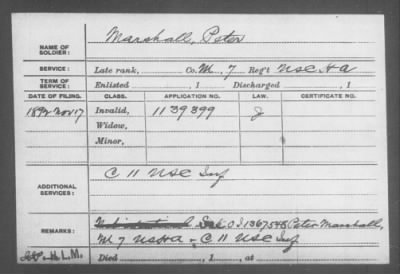 NAME OF SOLDIER: Marshall, Peter
SERVICE: Late rank, Co. M, 7 Reg't US C H A
TERM OF SERVICE: Enlisted , 1 Discharged , 1
DATE OF FILING. CLASS. APPLICATION NO. LAW. CERTIFICATE NO.
1892 Nov 17 Invalid, 1139899
Widow,
Minor,
ADDITIONAL SERVICES: C 11 USC Inf
REMARKS: O.I. 1367548 Peter Marshall,
M 7 USHA - C 11 USC Inf
L.M. Died , 1 , at